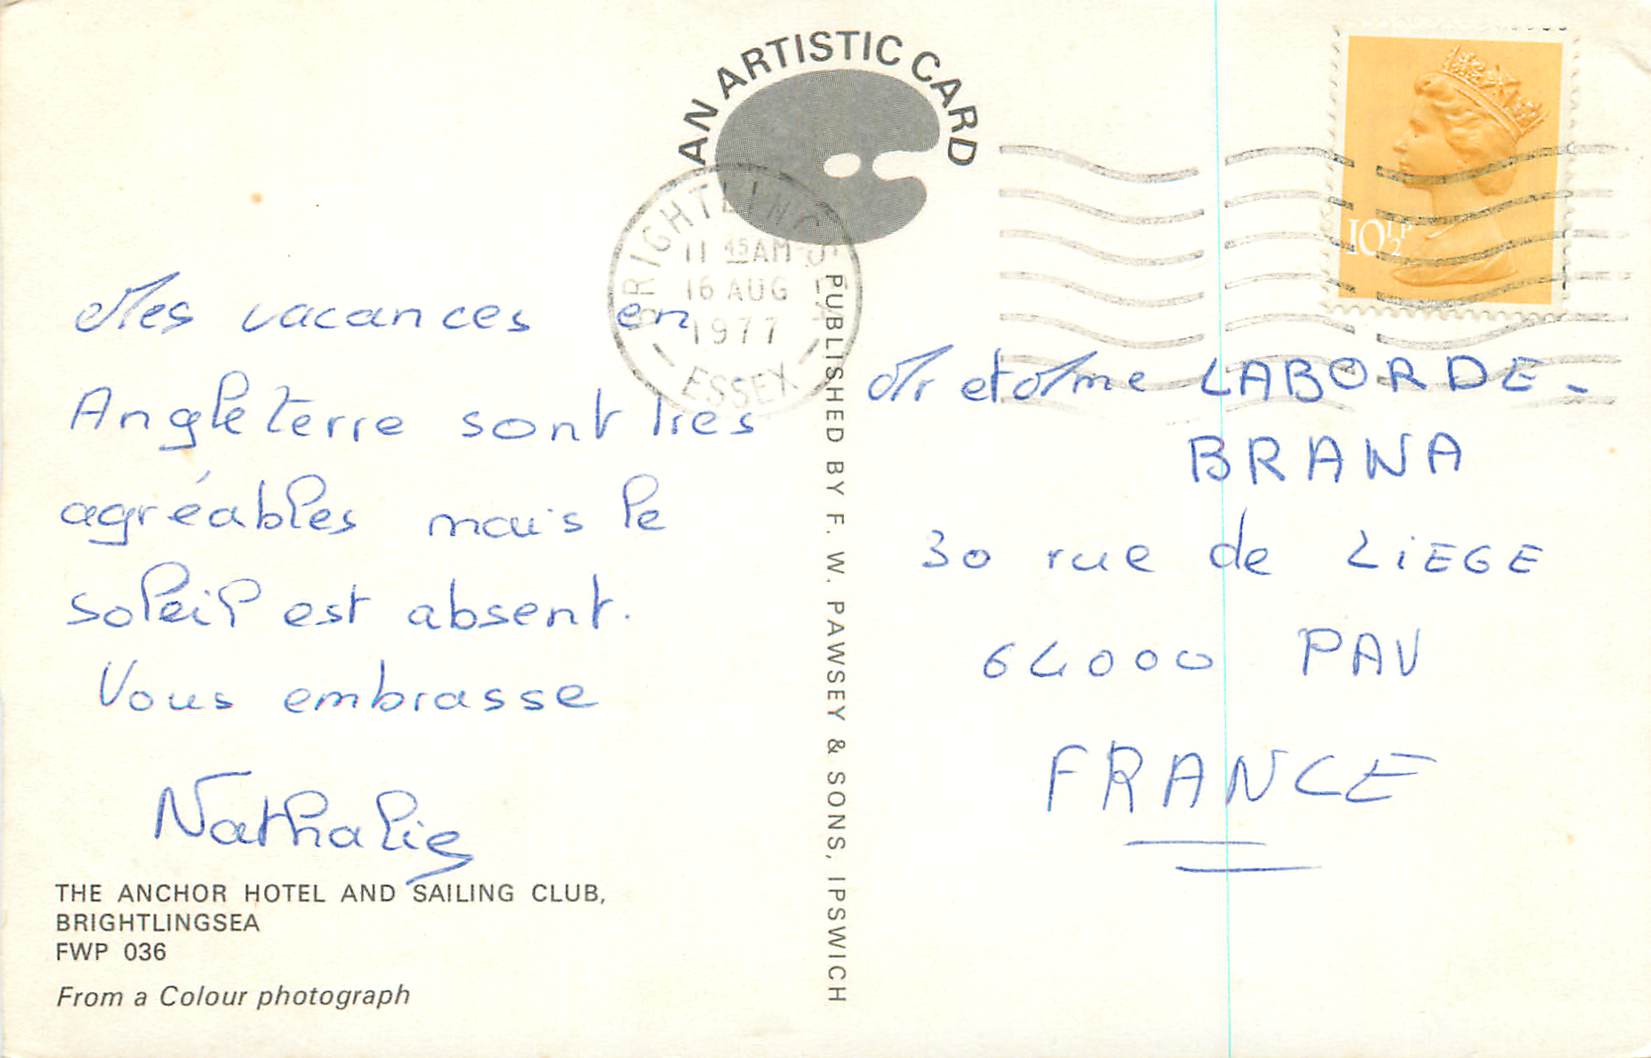 AN ARTISTIC CARD
BRIGHTLINGSEA
11 45 AM
16 AUG
1977
ESSEX
10½P
Mes vacances en
Angleterre sont tres
agréables mais le
soleil est absent.
Vous embrasse
Nathalie
THE ANCHOR HOTEL AND SAILING CLUB,
BRIGHTLINGSEA
FWP 036
From a Colour photograph
PUBLISHED BY F. W. PAWSEY & SONS, IPSWICH
Mr et Mme LABORDE-
BRANA
30 rue de LiEGE
64000 PAU
FRANCE